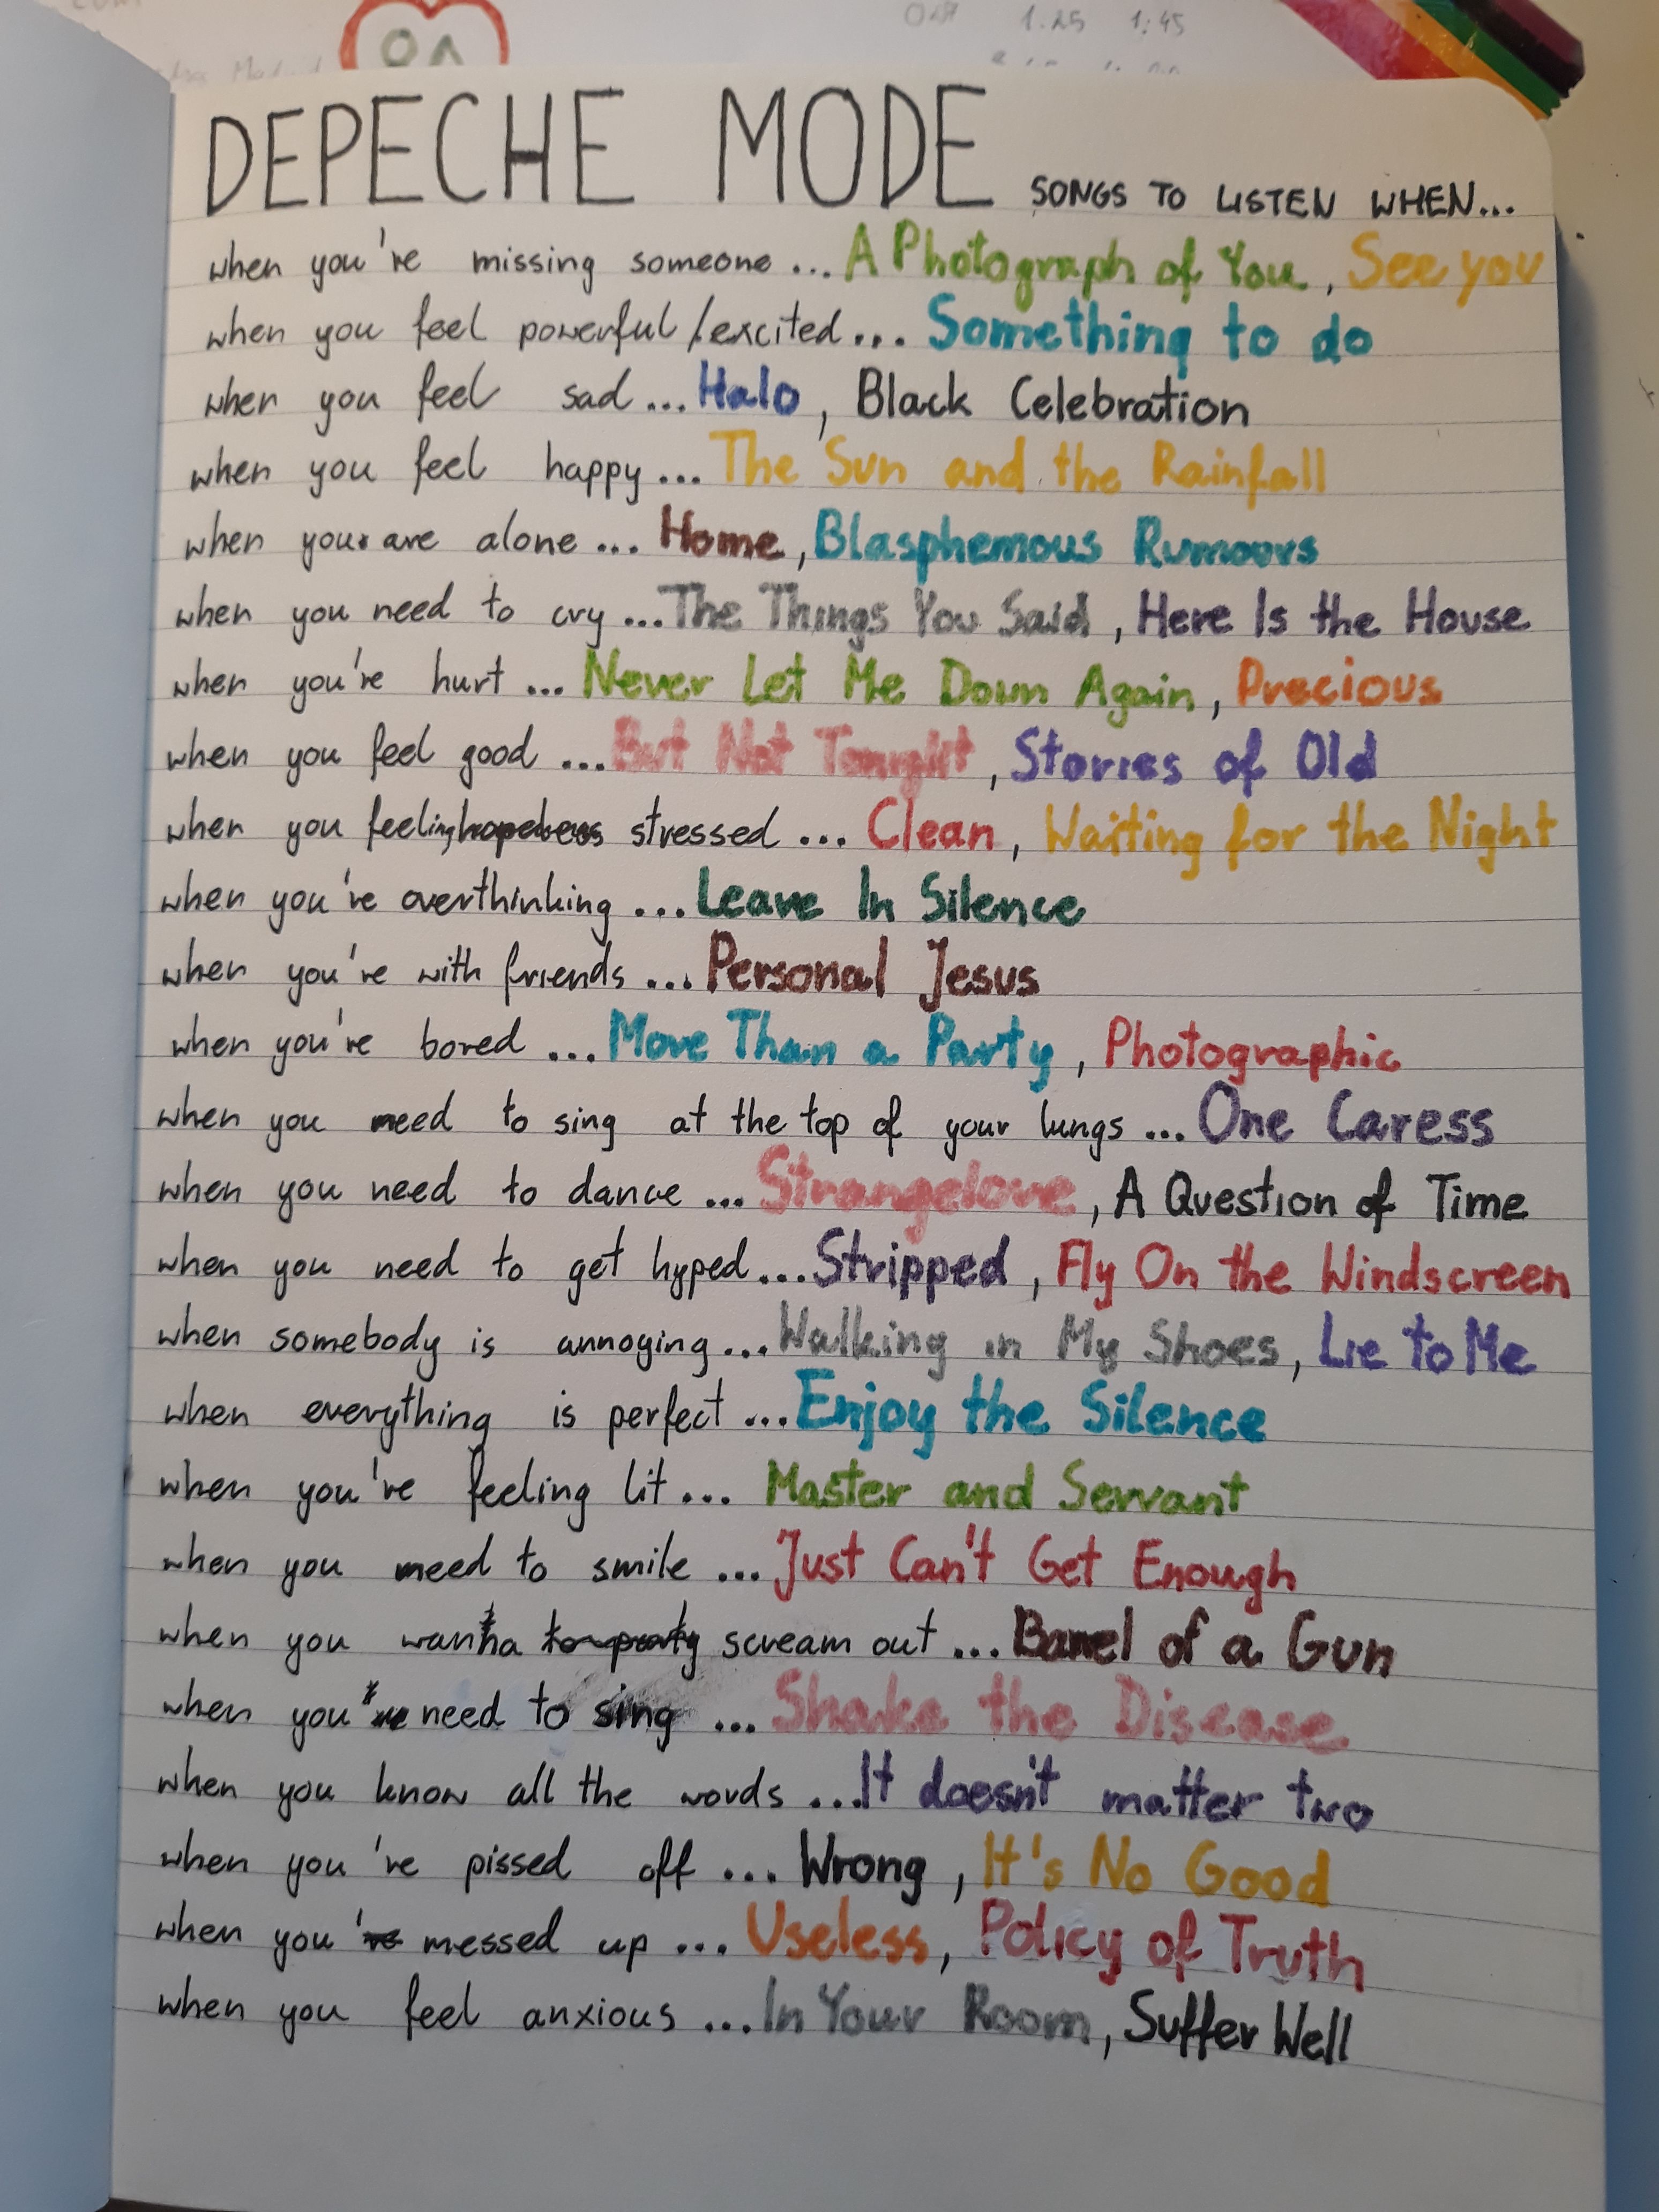 OA
1.25 1:45
DEPECHE MODE SONGS TO LISTEN WHEN...
when you're missing someone ... A Photograph of You, See you
when you feel powerful/excited... Something to do
when you feel sad ... Halo, Black Celebration
when you feel happy ... The Sun and the Rainfall
when you are alone ... Home, Blasphemous Rumours
when you need to cry ... The Things You Said, Here Is the House
when you're hurt ... Never Let Me Down Again, Precious
when you feel good ... But Not Tonight, Stories of Old
when you feeling hopeless stressed ... Clean, Waiting for the Night
when you're overthinking ... Leave In Silence
when you're with friends ... Personal Jesus
when you're bored ... More Than a Party, Photographic
when you need to sing at the top of your lungs ... One Caress
when you need to dance ... Strangelove, A Question of Time
when you need to get hyped... Stripped, Fly On the Windscreen
when somebody is annoying... Walking in My Shoes, Lie to Me
when everything is perfect ... Enjoy the Silence
when you're feeling lit ... Master and Servant
when you need to smile ... Just Can't Get Enough
when you wanna to party scream out ... Barrel of a Gun
when you need to sing ... Shake the Disease
when you know all the words ... It doesn't matter two
when you're pissed off ... Wrong, It's No Good
when you're messed up ... Useless, Policy of Truth
when you feel anxious ... In Your Room, Suffer Well